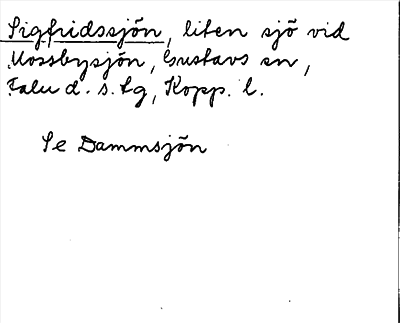 Sigfridssjön, liten sjö vid
Mossbysjön, Gustavs sn,
Falu d. s. tg, Kopp. l.
Se Dammsjön